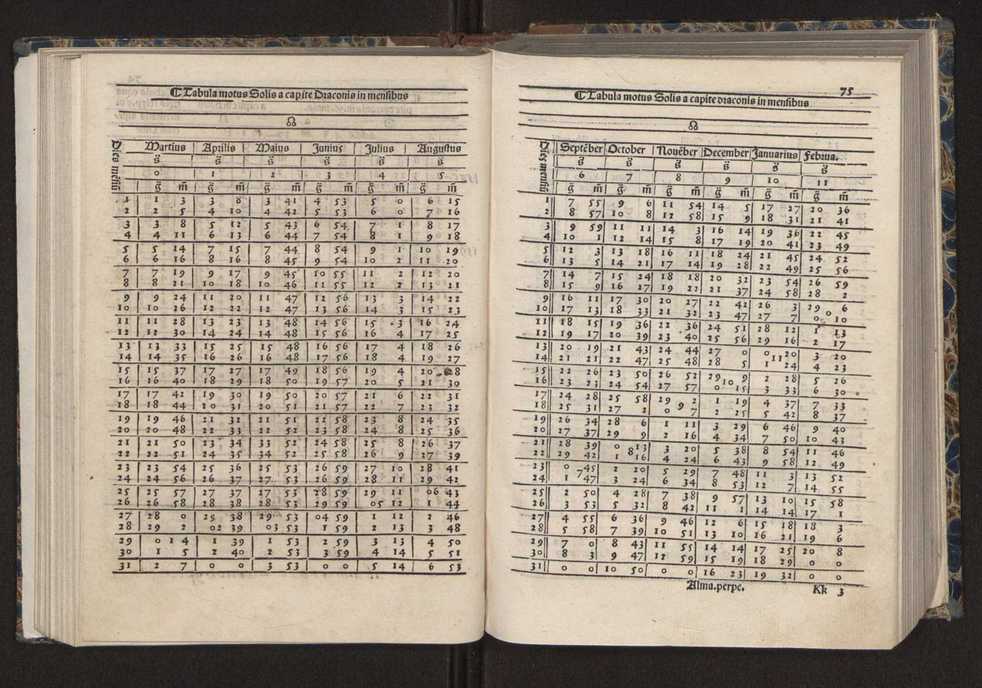 ☾ Tabula motus Solis a capite Draconis in mensibus
☊
Dies mēsiū Martius Aprilis Maius Junius Julius Augustus
g̃ g̃ g̃ g̃ g̃ g̃
0 1 2 3 4 5
g̃ m̃ g̃ m̃ g̃ m̃ g̃ m̃ g̃ m̃ g̃ m̃
1 1 3 3 8 3 41 4 53 5 0 6 15
2 2 5 4 10 4 42 5 53 6 0 7 16
3 3 8 5 12 5 43 6 54 7 1 8 17
4 4 11 6 13 6 44 7 54 8 1 9 18
5 5 14 7 15 7 44 8 54 9 1 10 19
6 6 16 8 16 8 45 9 54 10 2 11 20
7 7 19 9 17 9 45 10 55 11 2 12 20
8 8 21 10 18 10 46 11 55 12 2 13 21
9 9 24 11 20 11 47 12 56 13 3 14 22
10 10 26 12 22 12 47 13 56 14 3 15 23
11 11 28 13 23 13 48 14 56 15 3 16 24
12 12 30 14 24 14 48 15 56 16 4 17 25
13 13 33 15 25 15 48 16 56 17 4 18 26
14 14 35 16 26 16 48 17 56 18 4 19 27
15 15 37 17 27 17 49 18 56 19 4 20 28
16 16 40 18 29 18 50 19 57 20 5 21 30
17 17 42 19 30 19 50 20 57 21 6 22 31
18 18 44 20 31 20 51 21 57 22 7 23 32
19 19 46 21 31 21 51 22 58 23 8 24 35
20 20 48 22 33 22 52 23 58 24 8 25 36
21 21 50 23 34 23 52 24 58 25 8 26 37
22 22 51 24 35 24 52 25 58 26 9 27 39
23 23 54 25 36 25 53 26 59 27 10 28 41
24 24 56 26 37 27 53 26 59 28 11 29 42
25 25 57 27 37 27 53 28 59 29 11 06 43
26 26 58 28 38 28 53 29 59 05 12 1 44
27 28 0 29 38 29 53 04 59 1 12 2 46
28 29 2 02 39 03 53 1 59 2 13 3 48
29 0 1 4 1 39 1 53 2 59 3 13 4 50
30 1 5 2 40 2 53 3 59 4 14 5 51
31 2 7 0 0 3 53 0 0 5 14 6 53
75
☾ Tabula motus Solis a capite draconis in mensibus
☊
Dies mensiū Septēber October Nouēber December Januarius Februa.
g̃ g̃ g̃ g̃ g̃ g̃
6 7 8 9 10 11
g̃ m̃ g̃ m̃ g̃ m̃ g̃ m̃ g̃ m̃ g̃ m̃
1 7 55 9 6 11 54 14 5 17 27 20 36
2 8 57 10 8 12 58 15 9 18 31 21 41
3 9 59 11 11 14 3 16 14 19 36 22 45
4 10 1 12 14 15 8 17 19 20 41 23 49
5 12 3 13 18 16 11 18 24 21 45 24 52
6 13 5 14 21 17 14 19 28 22 49 25 56
7 14 7 15 24 18 18 20 32 23 54 26 59
8 15 9 16 27 19 22 21 37 24 58 28 2
9 16 11 17 30 20 27 22 42 26 3 29 6
10 17 13 18 33 21 32 23 47 27 7 0 0 10
11 18 15 19 36 22 36 24 51 28 12 1 13
12 19 17 20 39 23 40 25 56 29 16 2 17
13 20 19 21 43 24 44 27 0 0 11 20 3 20
14 21 21 22 47 25 48 28 5 1 24 4 23
15 22 26 23 50 26 52 29 9 2 28 5 26
16 23 23 24 54 27 57 0 10 15 3 33 6 30
17 24 28 25 58 29 2 1 19 4 37 7 33
18 25 31 27 2 0 9 7 2 25 5 42 8 37
19 26 34 28 6 1 11 3 29 6 46 9 40
20 27 37 29 9 2 16 4 34 7 50 10 43
21 28 39 0 8 13 3 20 5 38 8 54 11 46
22 29 42 1 16 4 24 6 43 9 58 12 49
23 0 7 45 2 20 5 29 7 48 11 3 13 52
24 1 47 3 24 6 34 8 53 12 7 14 55
25 2 50 4 28 7 38 9 57 13 10 15 58
26 3 53 5 32 8 42 11 1 14 14 17 1
27 4 55 6 36 9 46 12 6 15 18 18 3
28 5 58 7 39 10 51 13 10 16 21 19 6
29 7 0 8 43 11 55 14 14 17 25 20 8
30 8 3 9 47 12 59 15 19 18 29 0 0
31 0 0 10 50 0 0 16 23 19 32 0 0
Alma.perpe. Kk 3